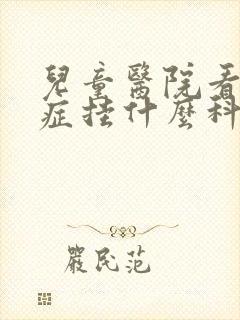 兒童醫院看
症挂什麼科
嚴民范